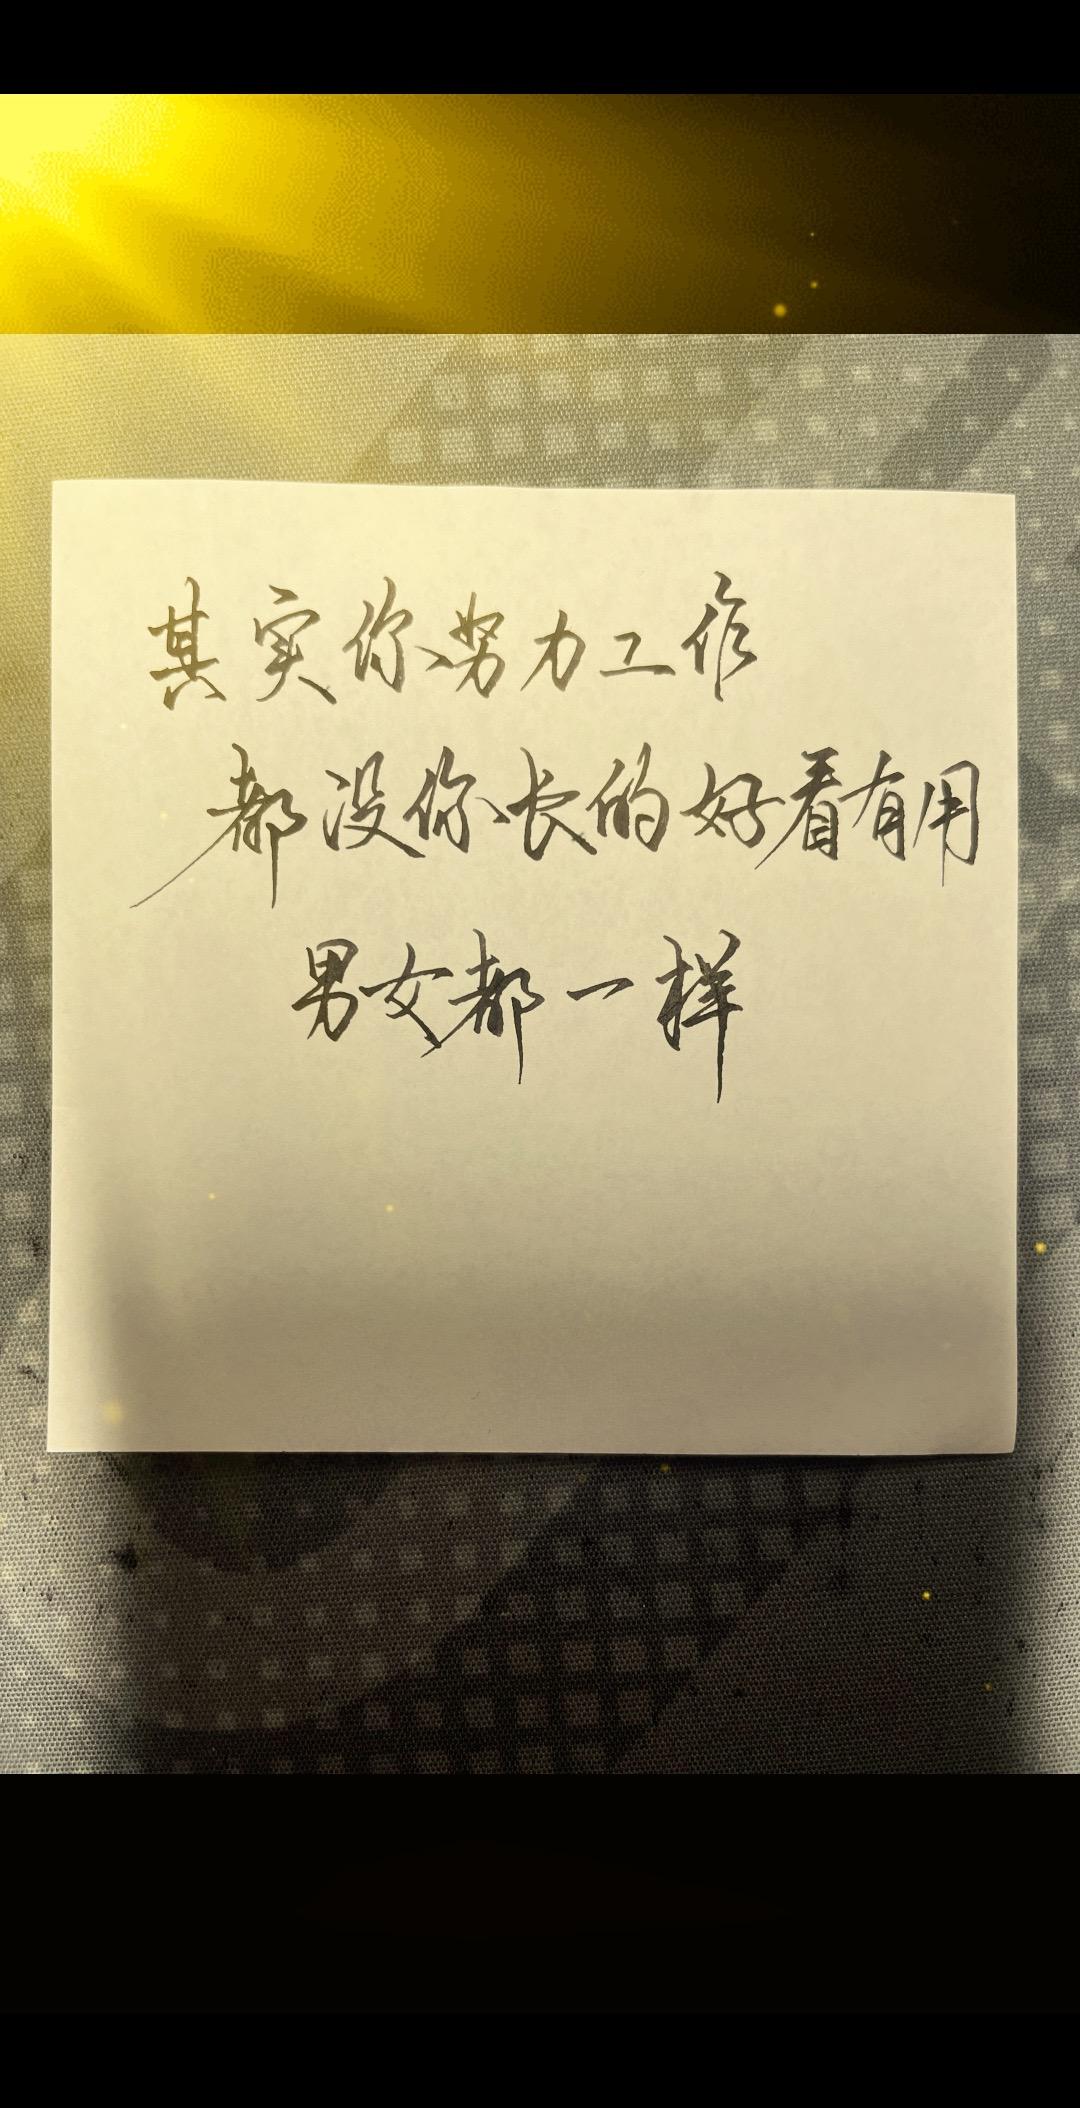 其实你努力工作
都没你长的好看有用
男女都一样